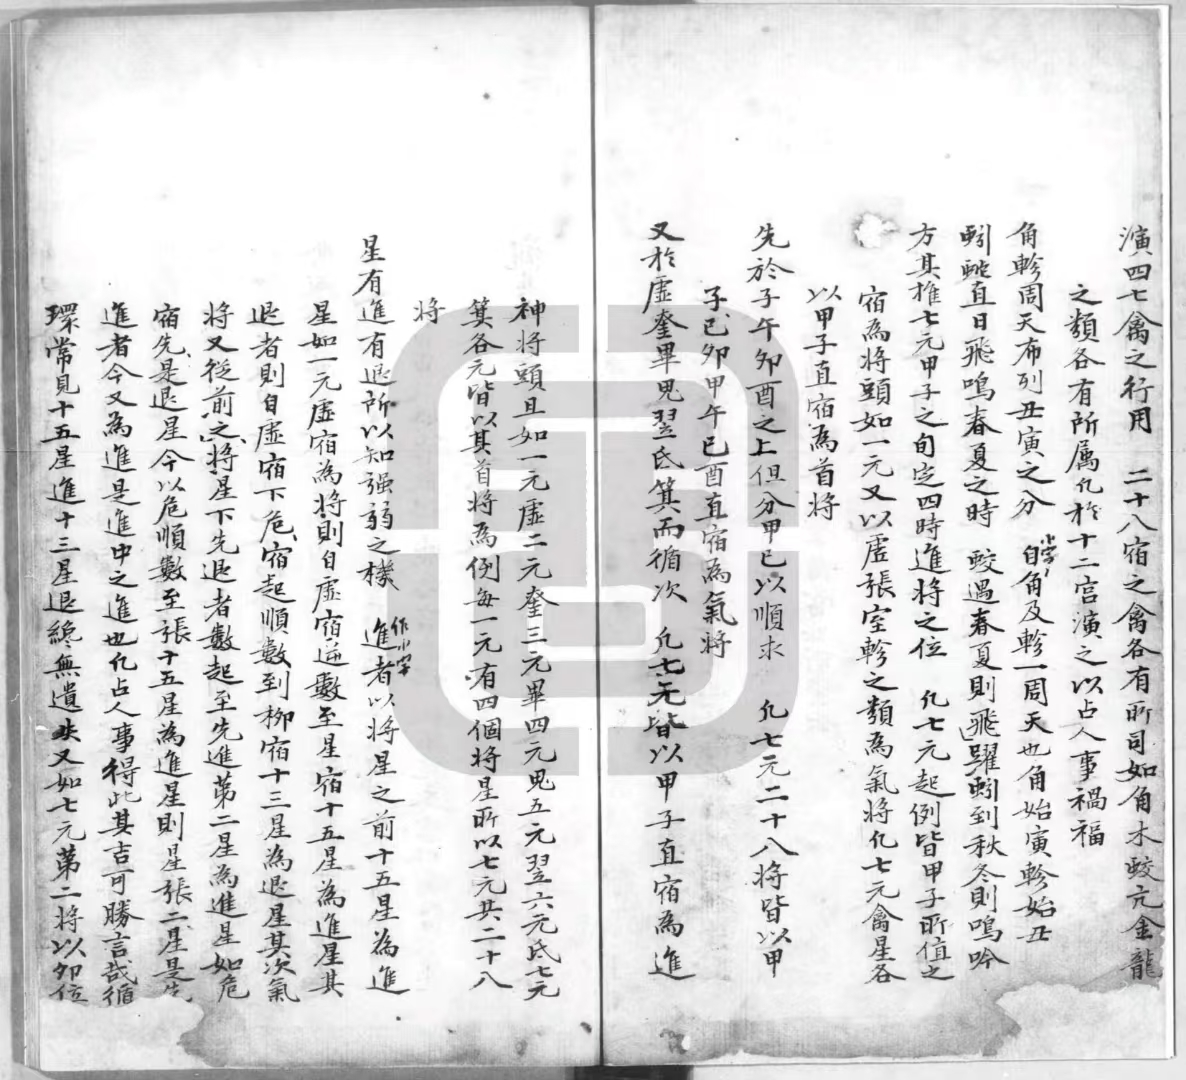 演四七禽之行用　二十八宿之禽各有所司如角木蛟亢金龍
之類各有所属凢扵十二宫演之以占人事禍福
角軫周天布列丑寅之分　小字自角及軫一周天也角始寅軫始丑
蚓蛇直日飛鳴春夏之時　蛟遇春夏則飛躍蚓到秋冬則鳴吟
方其推七元甲子之旬定四時進将之位　凢七元起例皆甲子所值之
宿為将頭如一元又以虚張室軫之類為氣将凢七元禽星各
以甲子直宿為首将
先於子午夘酉之上但分甲巳以順求　凢七元二十八将皆以甲
子巳夘甲午巳酉直宿為氣将
又扵虚奎畢鬼翌氐箕而循次　凢七元皆以甲子直宿為進
神将頭且如一元虚二元奎三元畢四元鬼五元翌六元氐七元
箕各元皆以其首将為例每一元有四個将星所以七元共二十八
将
星有進有退所以知强弱之樣　作小字進者以将星之前十五星為進
星如一元虚宿為将則自虚宿逆數至星宿十五星為進星其
退者則自虚宿下危宿起順數到柳宿十三星為退星其次氣
将又從前之将星下先退者數起至先進苐二星為進星如危
宿先是退星今以危順數至張十五星為進星則星張二星是先
進者今又為進是進中之進也凢占人事得此其吉可勝言哉循
環常見十五星進十三星退緫無遺失又如七元苐二将以夘位